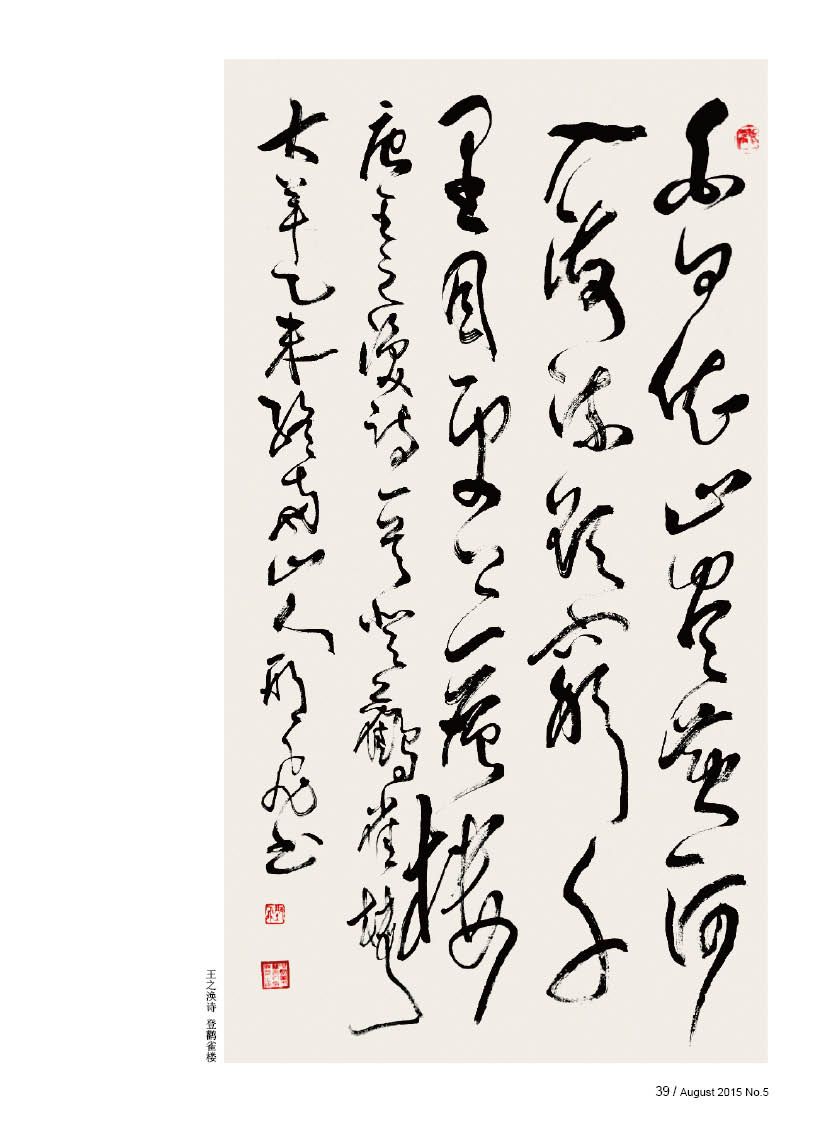 白日依山盡黄河
入海流欲窮千
里目更上一層樓
唐王之渙詩一首登鸛雀樓
大羊乙未終南山人書
王之涣诗 登鹳雀楼
39 / August 2015 No.5